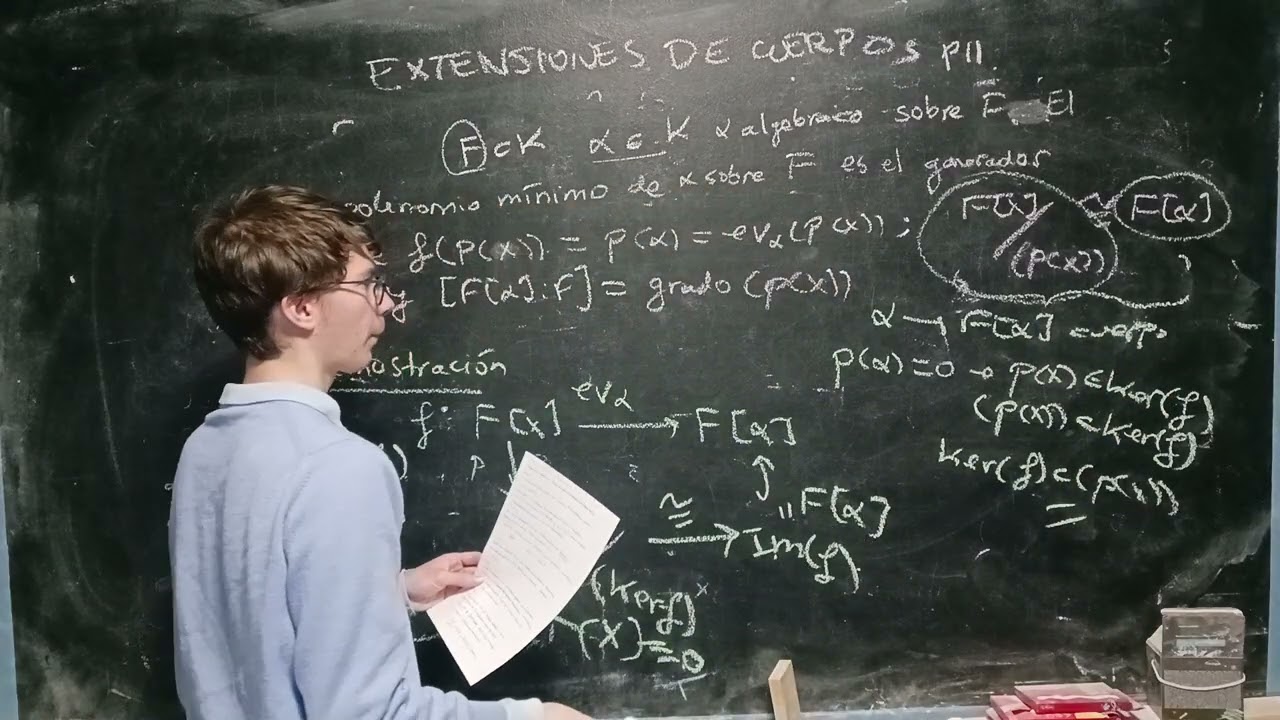 EXTENSIONES DE CUERPOS PII.
F ⊂ K α ∈ K α algebraico sobre F El
polinomio mínimo de α sobre F es el generador
f(p(x)) = p(α) = ev_α(p(x)) ;
F[x]/(p(x)) ≅ F[α]
y [F[α]:F] = grado (p(x))
α → F[α] cuerpo
p(α)=0 → p(x) ∈ Ker(f)
(p(x)) ⊂ Ker(f)
Ker(f) ⊂ (p(x))
mostración
f: F[x] ev_α → F[α]
"F[α]
≅ → Im(f)
(Ker f)
(x) = 0